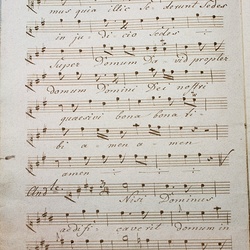 mus quia illic Sederunt Sedes
in judicio Sedes
Super Domum David propter
Domum Domini Dei nostri
quaesivi bona bona ti-
bi amen amen
amen
And.te Nisi Dominus
aedificaverit Domum in